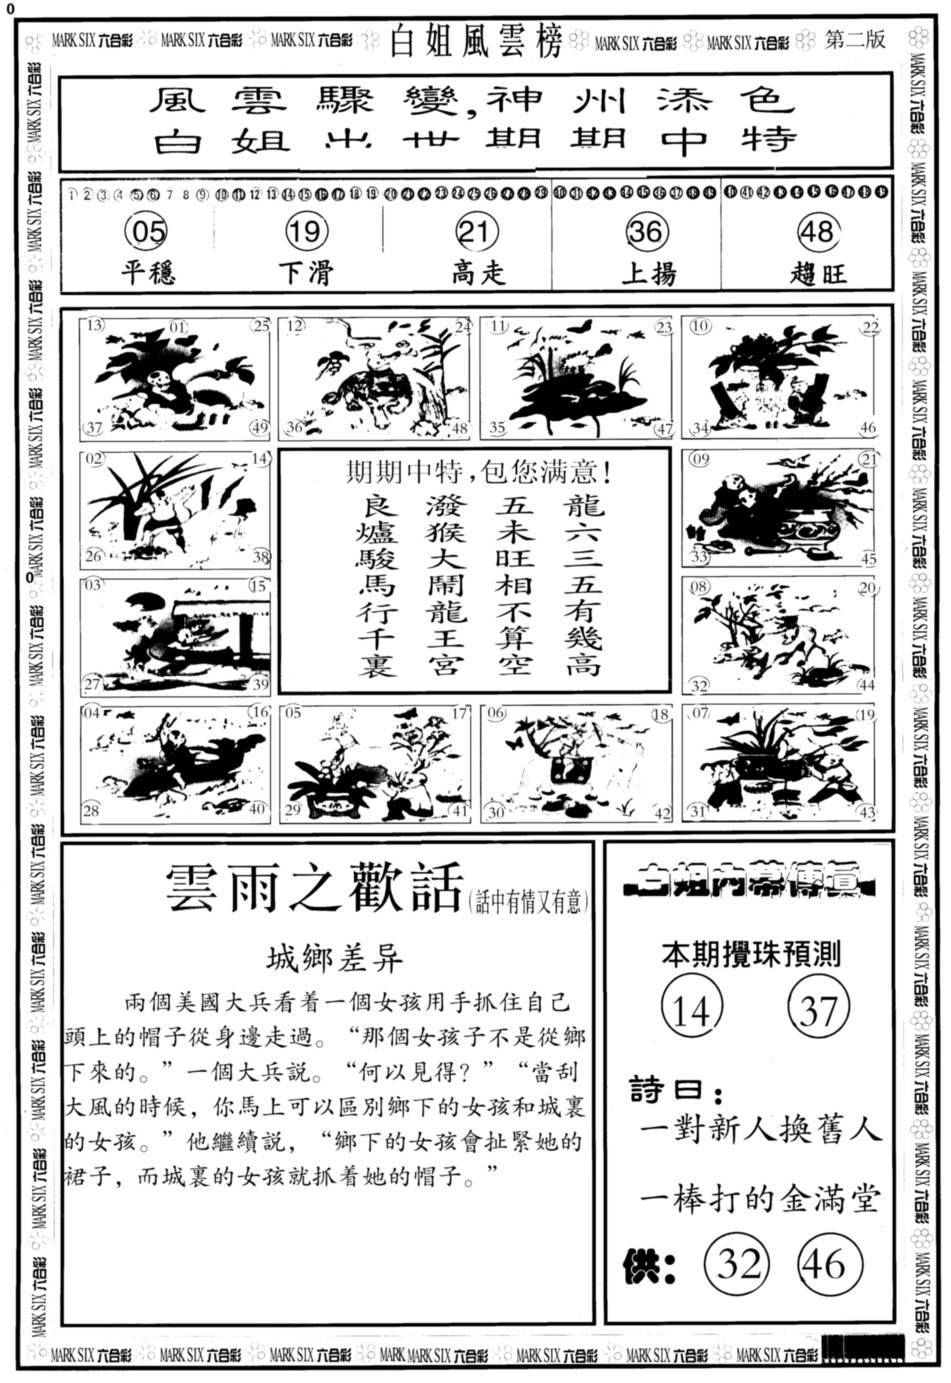 0
MARK SIX 六合彩 MARK SIX 六合彩 MARK SIX 六合彩 白姐風雲榜 MARK SIX 六合彩 MARK SIX 六合彩 第二版
風雲驟變,神州添色
白姐出世期期中特
1 2 3 4 5 6 7 8 9 10 11 12 13 14 15 16 17 18 19 20 21 22 23 24 25 26 27 28 29 30 31 32 33 34 35 36 37 38 39 40 41 42 43 44 45 46 47 48 49
05 19 21 36 48
平穩 下滑 高走 上揚 趨旺
13 01 25 12 24 11 23 10 22
37 49 36 48 35 47 34 46
02 14 09 21
26 38 33 45
03 15 08 20
27 39 32 44
04 16 05 17 06 18 07 19
28 40 29 41 30 42 31 43
期期中特,包您满意!
龍六三五有幾高
五未旺相不算空
潑猴大鬧龍王宮
良爐駿馬行千裏
雲雨之歡話(話中有情又有意)
城鄉差异
兩個美國大兵看着一個女孩用手抓住自己
頭上的帽子從身邊走過。“那個女孩子不是從鄉
下來的。”一個大兵説。“何以見得?”“當刮
大風的時候,你馬上可以區别鄉下的女孩和城裏
的女孩。”他繼續説,“鄉下的女孩會扯緊她的
裙子,而城裏的女孩就抓着她的帽子。”
白姐内幕傳真
本期攪珠預測
14 37
詩曰:
一對新人换舊人
一棒打的金滿堂
供: 32 46
MARK SIX 六合彩 MARK SIX 六合彩 MARK SIX 六合彩 MARK MARK SIX 六合彩 MARK SIX 六合彩 MARK SIX 六合彩 MARK SIX 六合彩